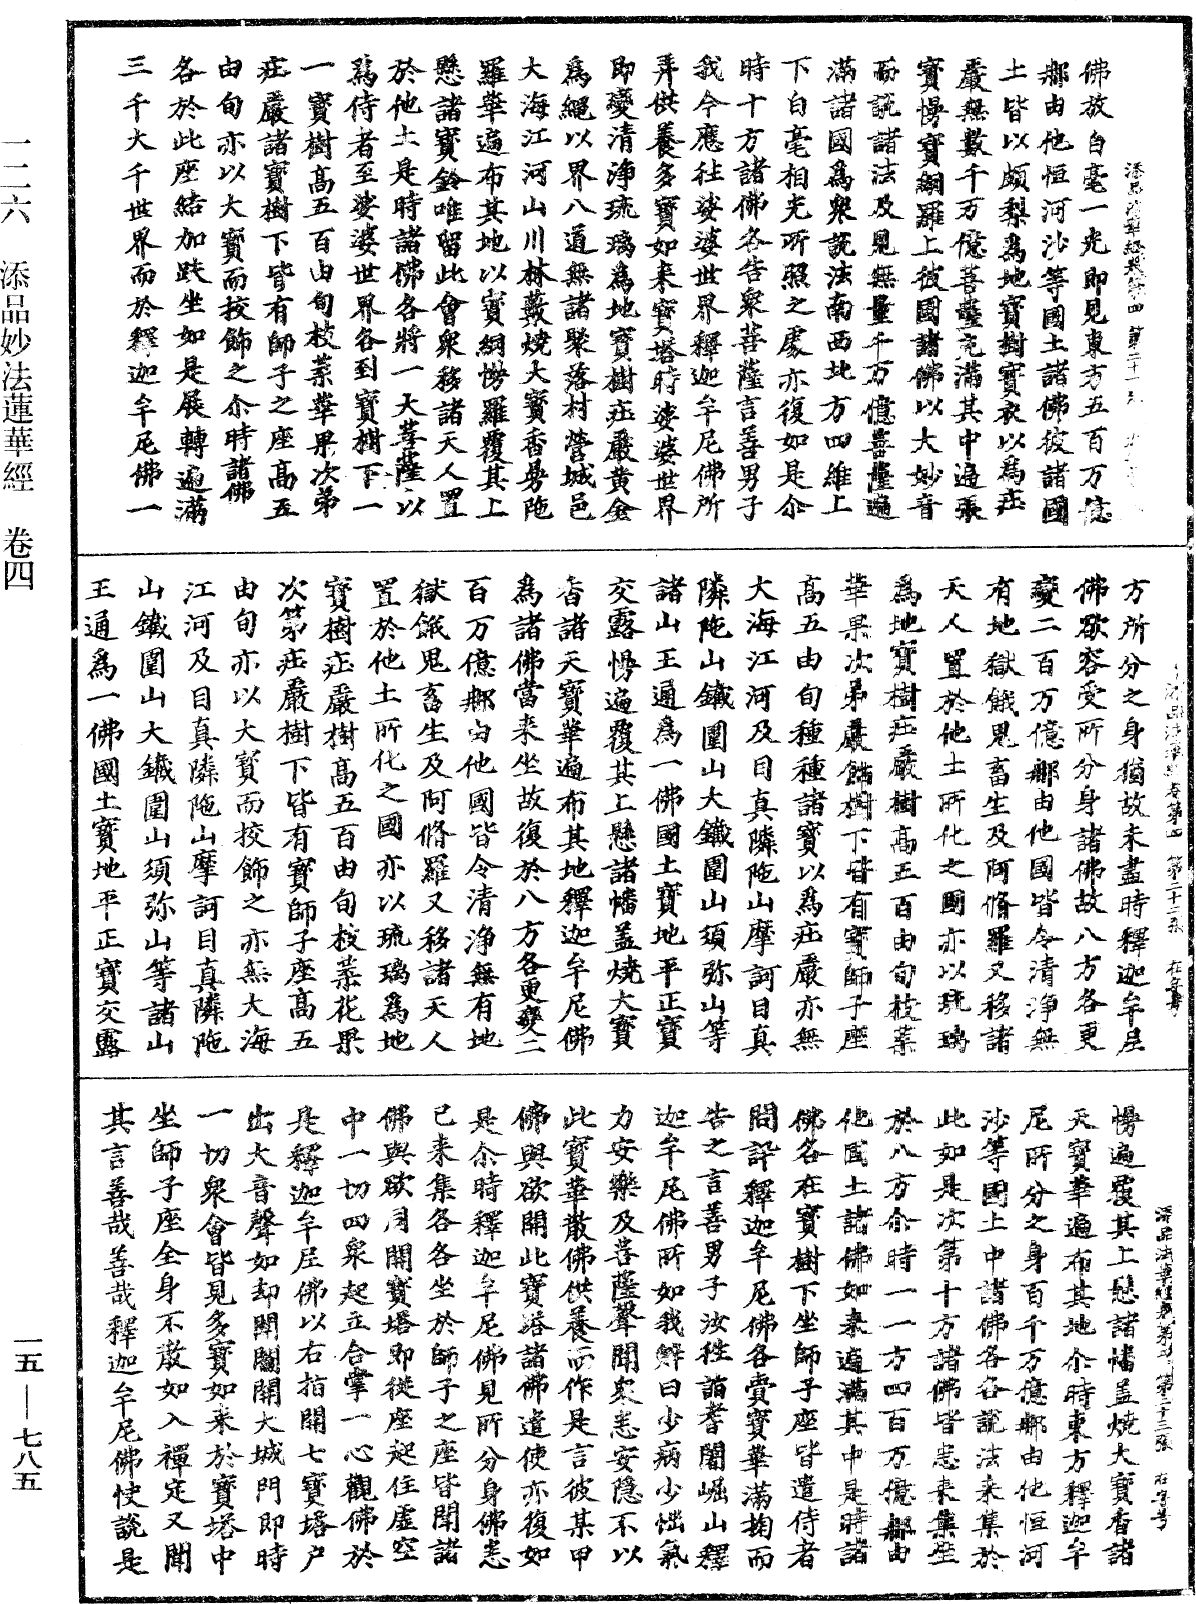 一二六　添品妙法蓮華經　卷四
一五—七八五
佛放白毫一光即見東方五百万億
那由他恒河沙等國土諸佛彼諸國
土皆以頗梨為地寶樹寶衣以為莊
嚴無數千万億菩薩充滿其中遍張
寶幔寶網羅上彼國諸佛以大妙音
而說諸法及見無量千万億菩薩遍
滿諸國為衆說法南西北方四維上
下白毫相光所照之處亦復如是尒
時十方諸佛各告衆菩薩言善男子
我今應往娑婆世界釋迦牟尼佛所
并供養多寶如来寶塔時娑婆世界
即變清淨琉璃為地寶樹莊嚴黃金
為繩以界八道無諸聚落村營城邑
大海江河山川林藪燒大寶香曼陁
羅華遍布其地以寶網幔羅覆其上
懸諸寶鈴唯留此會衆移諸天人置
於他土是時諸佛各將一大菩薩以
為侍者至娑婆世界各到寶樹下一
一寶樹高五百由旬枝葉華果次第
莊嚴諸寶樹下皆有師子之座高五
由旬亦以大寶而挍飾之尒時諸佛
各於此座結加趺坐如是展轉遍滿
三千大千世界而於釋迦牟尼佛一
方所分之身猶故未盡時釋迦牟尼
佛欲容受所分身諸佛故八方各更
變二百万億那由他國皆令清淨無
有地獄餓鬼畜生及阿脩羅又移諸
天人置於他土所化之國亦以琉璃
為地寶樹莊嚴樹高五百由旬枝葉
華果次第嚴飾樹下皆有寶師子座
高五由旬種種諸寶以為莊嚴亦無
大海江河及目真隣陁山摩訶目真
隣陁山鐵圍山大鐵圍山須弥山等
諸山王通為一佛國土寶地平正寶
交露幔遍覆其上懸諸幡蓋燒大寶
香諸天寶華遍布其地釋迦牟尼佛
為諸佛當来坐故復於八方各更變二
百万億那由他國皆令清淨無有地
獄餓鬼畜生及阿脩羅又移諸天人
置於他土所化之國亦以琉璃為地
寶樹莊嚴樹高五百由旬枝葉花果
次第莊嚴樹下皆有寶師子座高五
由旬亦以大寶而挍飾之亦無大海
江河及目真隣陁山摩訶目真隣陁
山鐵圍山大鐵圍山須弥山等諸山
王通為一佛國土寶地平正寶交露
幔遍覆其上懸諸幡蓋燒大寶香諸
天寶華遍布其地尒時東方釋迦牟
尼所分之身百千万億那由他恒河
沙等國土中諸佛各各說法来集於
此如是次第十方諸佛皆悉来集坐
於八方尒時一一方四百万億那由
他國土諸佛如来遍滿其中是時諸
佛各在寶樹下坐師子座皆遣侍者
問訊釋迦牟尼佛各賷寶華滿掬而
告之言善男子汝往詣耆闍崛山釋
迦牟尼佛所如我辭曰少病少惱氣
力安樂及菩薩聲聞衆悉安隱不以
此寶華散佛供養而作是言彼某甲
佛與欲開此寶塔諸佛遣使亦復如
是尒時釋迦牟尼佛見所分身佛悉
已来集各各坐於師子之座皆聞諸
佛與欲同開寶塔即從座起住虛空
中一切四衆起立合掌一心觀佛於
是釋迦牟尼佛以右指開七寶塔户
出大音聲如却關鑰開大城門即時
一切衆會皆見多寶如来於寶塔中
坐師子座全身不散如入禪定又聞
其言善哉善哉釋迦牟尼佛快說是